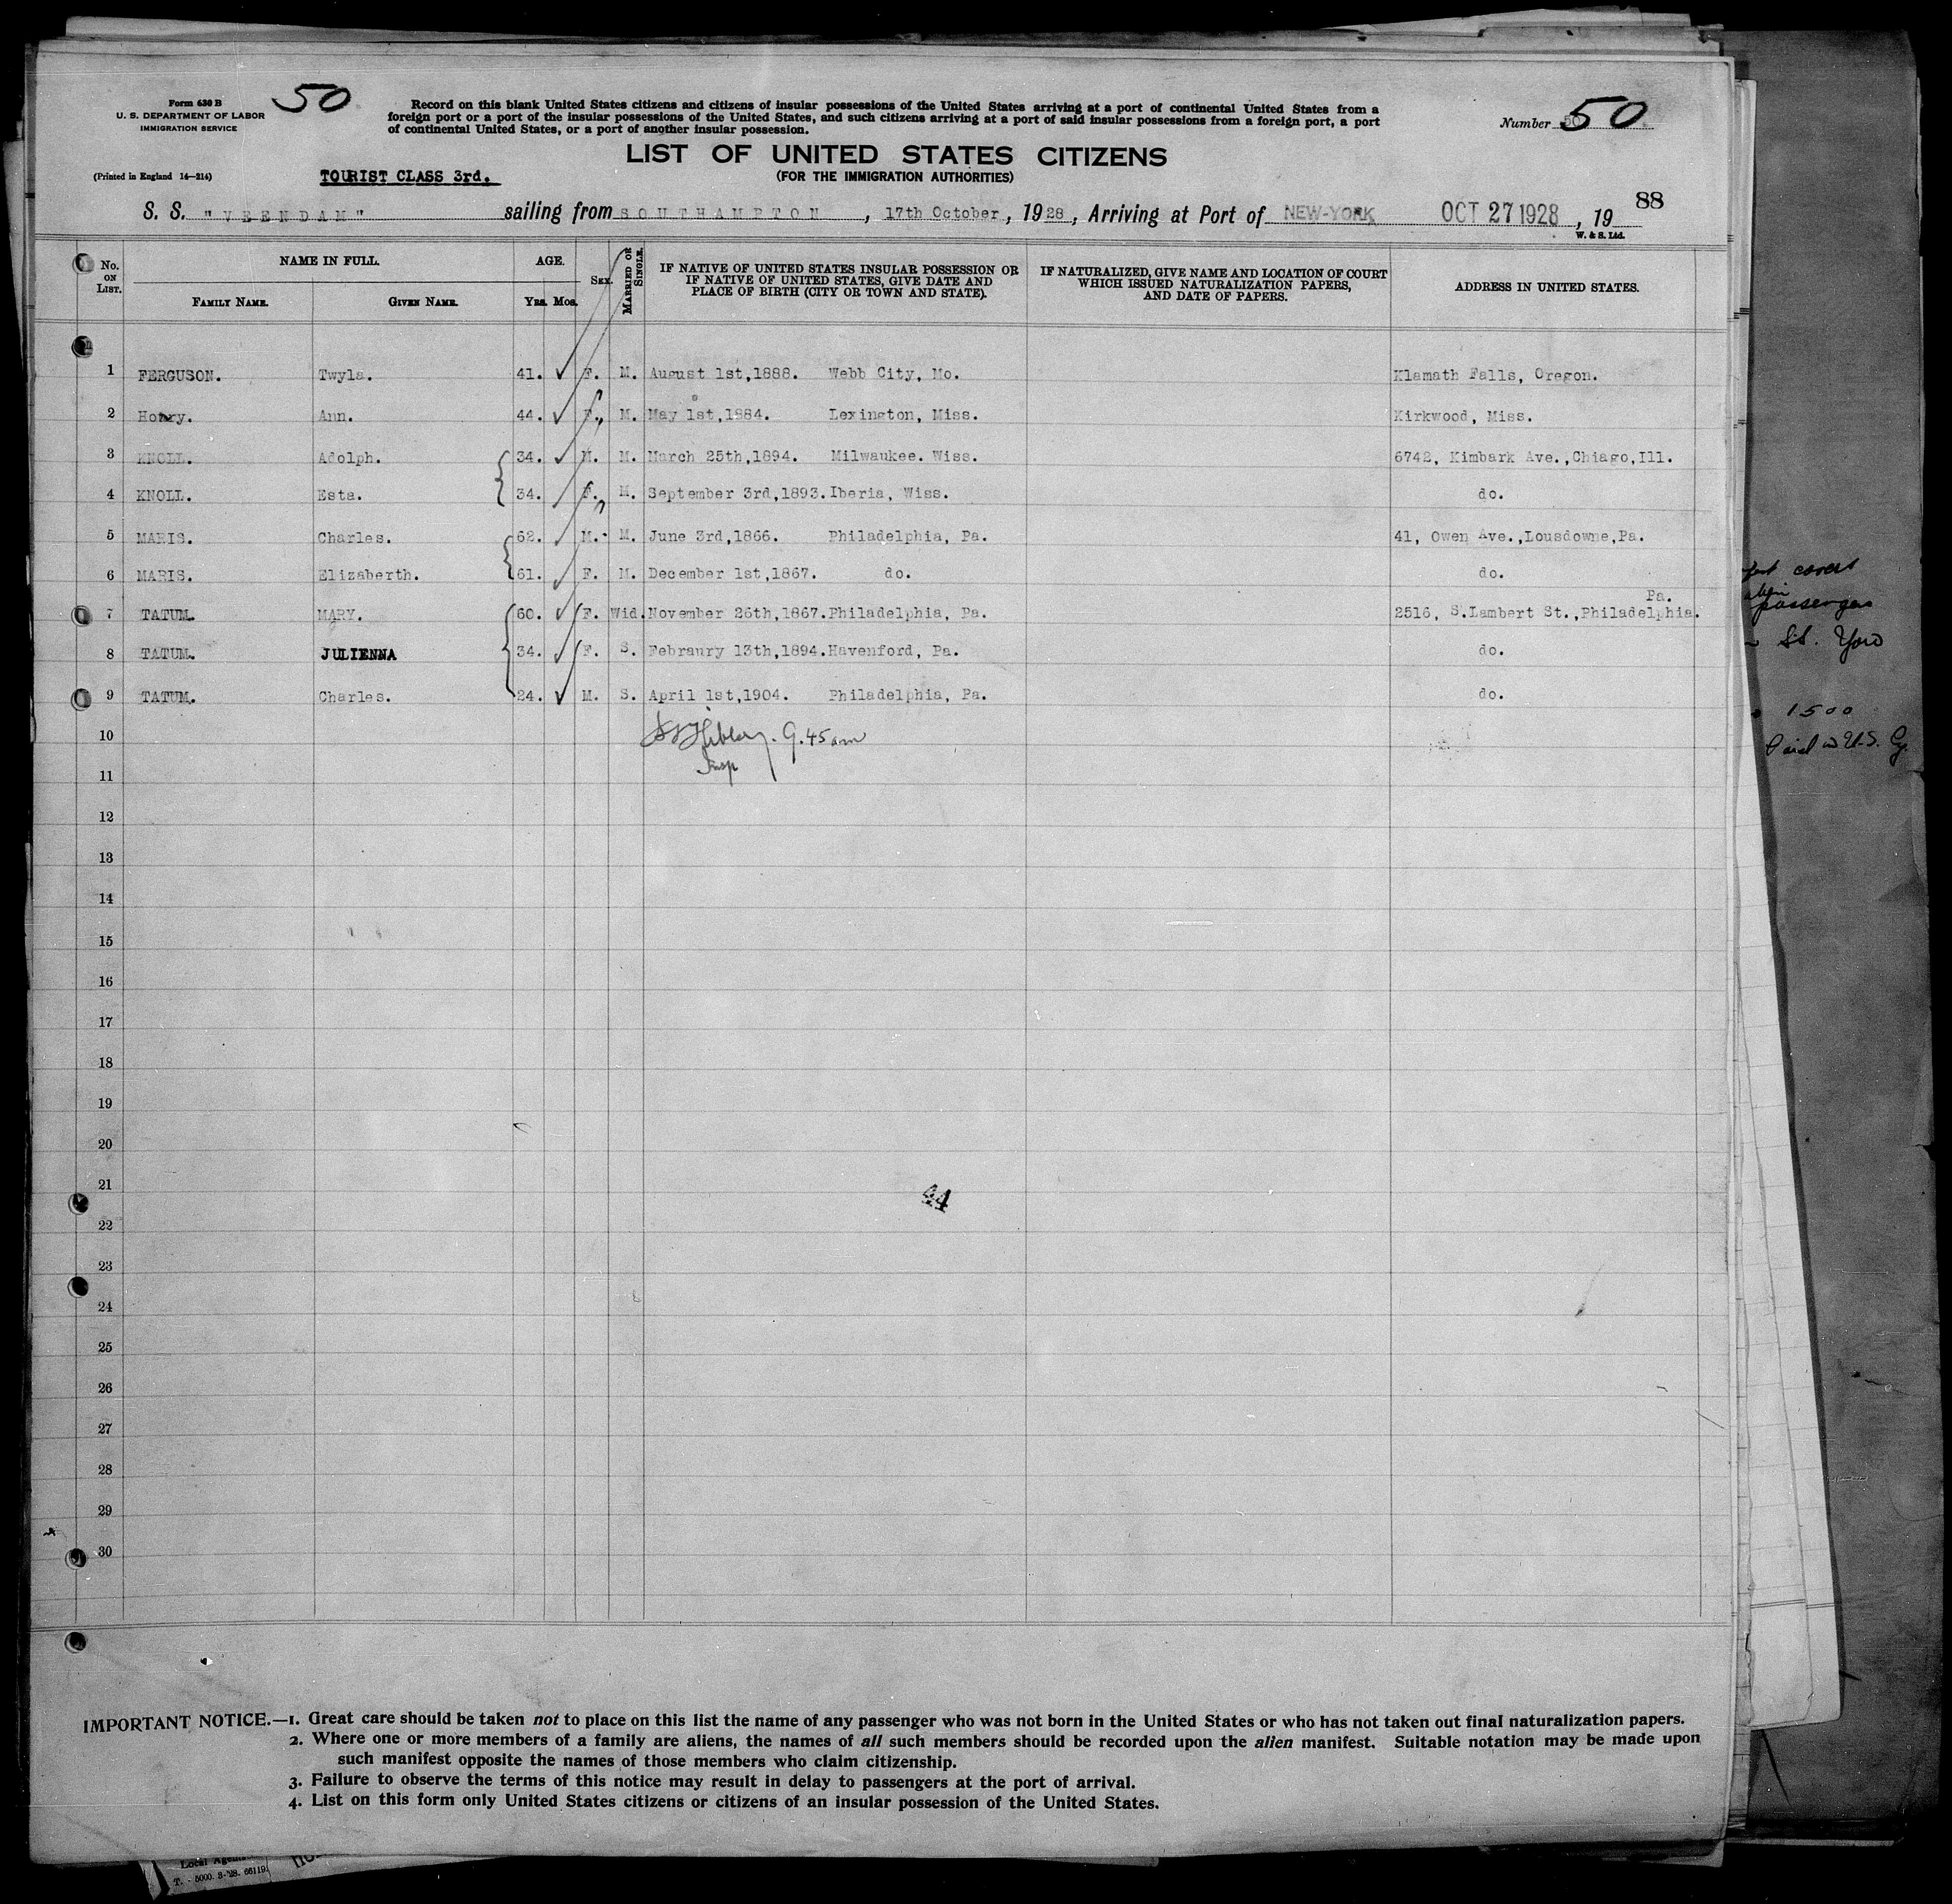 Form 630 B
U. S. DEPARTMENT OF LABOR
IMMIGRATION SERVICE
50
Record on this blank United States citizens and citizens of insular possessions of the United States arriving at a port of continental United States from a
foreign port or a port of the insular possessions of the United States, and such citizens arriving at a port of said insular possessions from a foreign port, a port
of continental United States, or a port of another insular possession.
Number 50
LIST OF UNITED STATES CITIZENS
(Printed in England 14—214)
TOURIST CLASS 3rd.
(FOR THE IMMIGRATION AUTHORITIES)
S. S. "VEENDAM" sailing from SOUTHAMPTON, 17th October, 1928, Arriving at Port of NEW-YORK OCT 27 1928, 19 88
W. & S. Ltd.
No. ON LIST. NAME IN FULL. FAMILY NAME. GIVEN NAME. AGE. Yrs. Mos. SEX. MARRIED OR SINGLE. IF NATIVE OF UNITED STATES INSULAR POSSESSION OR IF NATIVE OF UNITED STATES, GIVE DATE AND PLACE OF BIRTH (CITY OR TOWN AND STATE). IF NATURALIZED, GIVE NAME AND LOCATION OF COURT WHICH ISSUED NATURALIZATION PAPERS, AND DATE OF PAPERS. ADDRESS IN UNITED STATES.
1 FERGUSON. Twyla. 41. F. M. August 1st,1888. Webb City, Mo. Klamath Falls, Oregon.
2 Ann. 44. F. M. May 1st,1884. Lexington, Miss. Kirkwood, Miss.
3 KNOLL. Adolph. 34. M. M. March 25th,1894. Milwaukee. Wiss. 6742, Kimbark Ave.,Chiago,Ill.
4 KNOLL. Esta. 34. F. M. September 3rd,1893. Iberia, Wiss. do.
5 MARIS. Charles. 62. M. M. June 3rd,1866. Philadelphia, Pa. 41, Owen Ave.,Lousdowne,Pa.
6 MARIS. Elizaberth. 61. F. M. December 1st,1867. do. do.
7 TATUM. MARY. 60. F. Wid. November 26th,1867. Philadelphia, Pa. 2516, S.Lambert St.,Philadelphia. Pa.
8 TATUM. JULIENNA 34. F. S. Febraury 13th,1894. Havenford, Pa. do.
9 TATUM. Charles. 24. M. S. April 1st,1904. Philadelphia, Pa. do.
10
9.45 am
Insp
11
12
13
14
15
16
17
18
19
20
21
44
22
23
24
25
26
27
28
29
30
passengers
1500
IMPORTANT NOTICE.—1. Great care should be taken not to place on this list the name of any passenger who was not born in the United States or who has not taken out final naturalization papers.
2. Where one or more members of a family are aliens, the names of all such members should be recorded upon the alien manifest. Suitable notation may be made upon
such manifest opposite the names of those members who claim citizenship.
3. Failure to observe the terms of this notice may result in delay to passengers at the port of arrival.
4. List on this form only United States citizens or citizens of an insular possession of the United States.
T. - 5000. 3-'28. 66119.